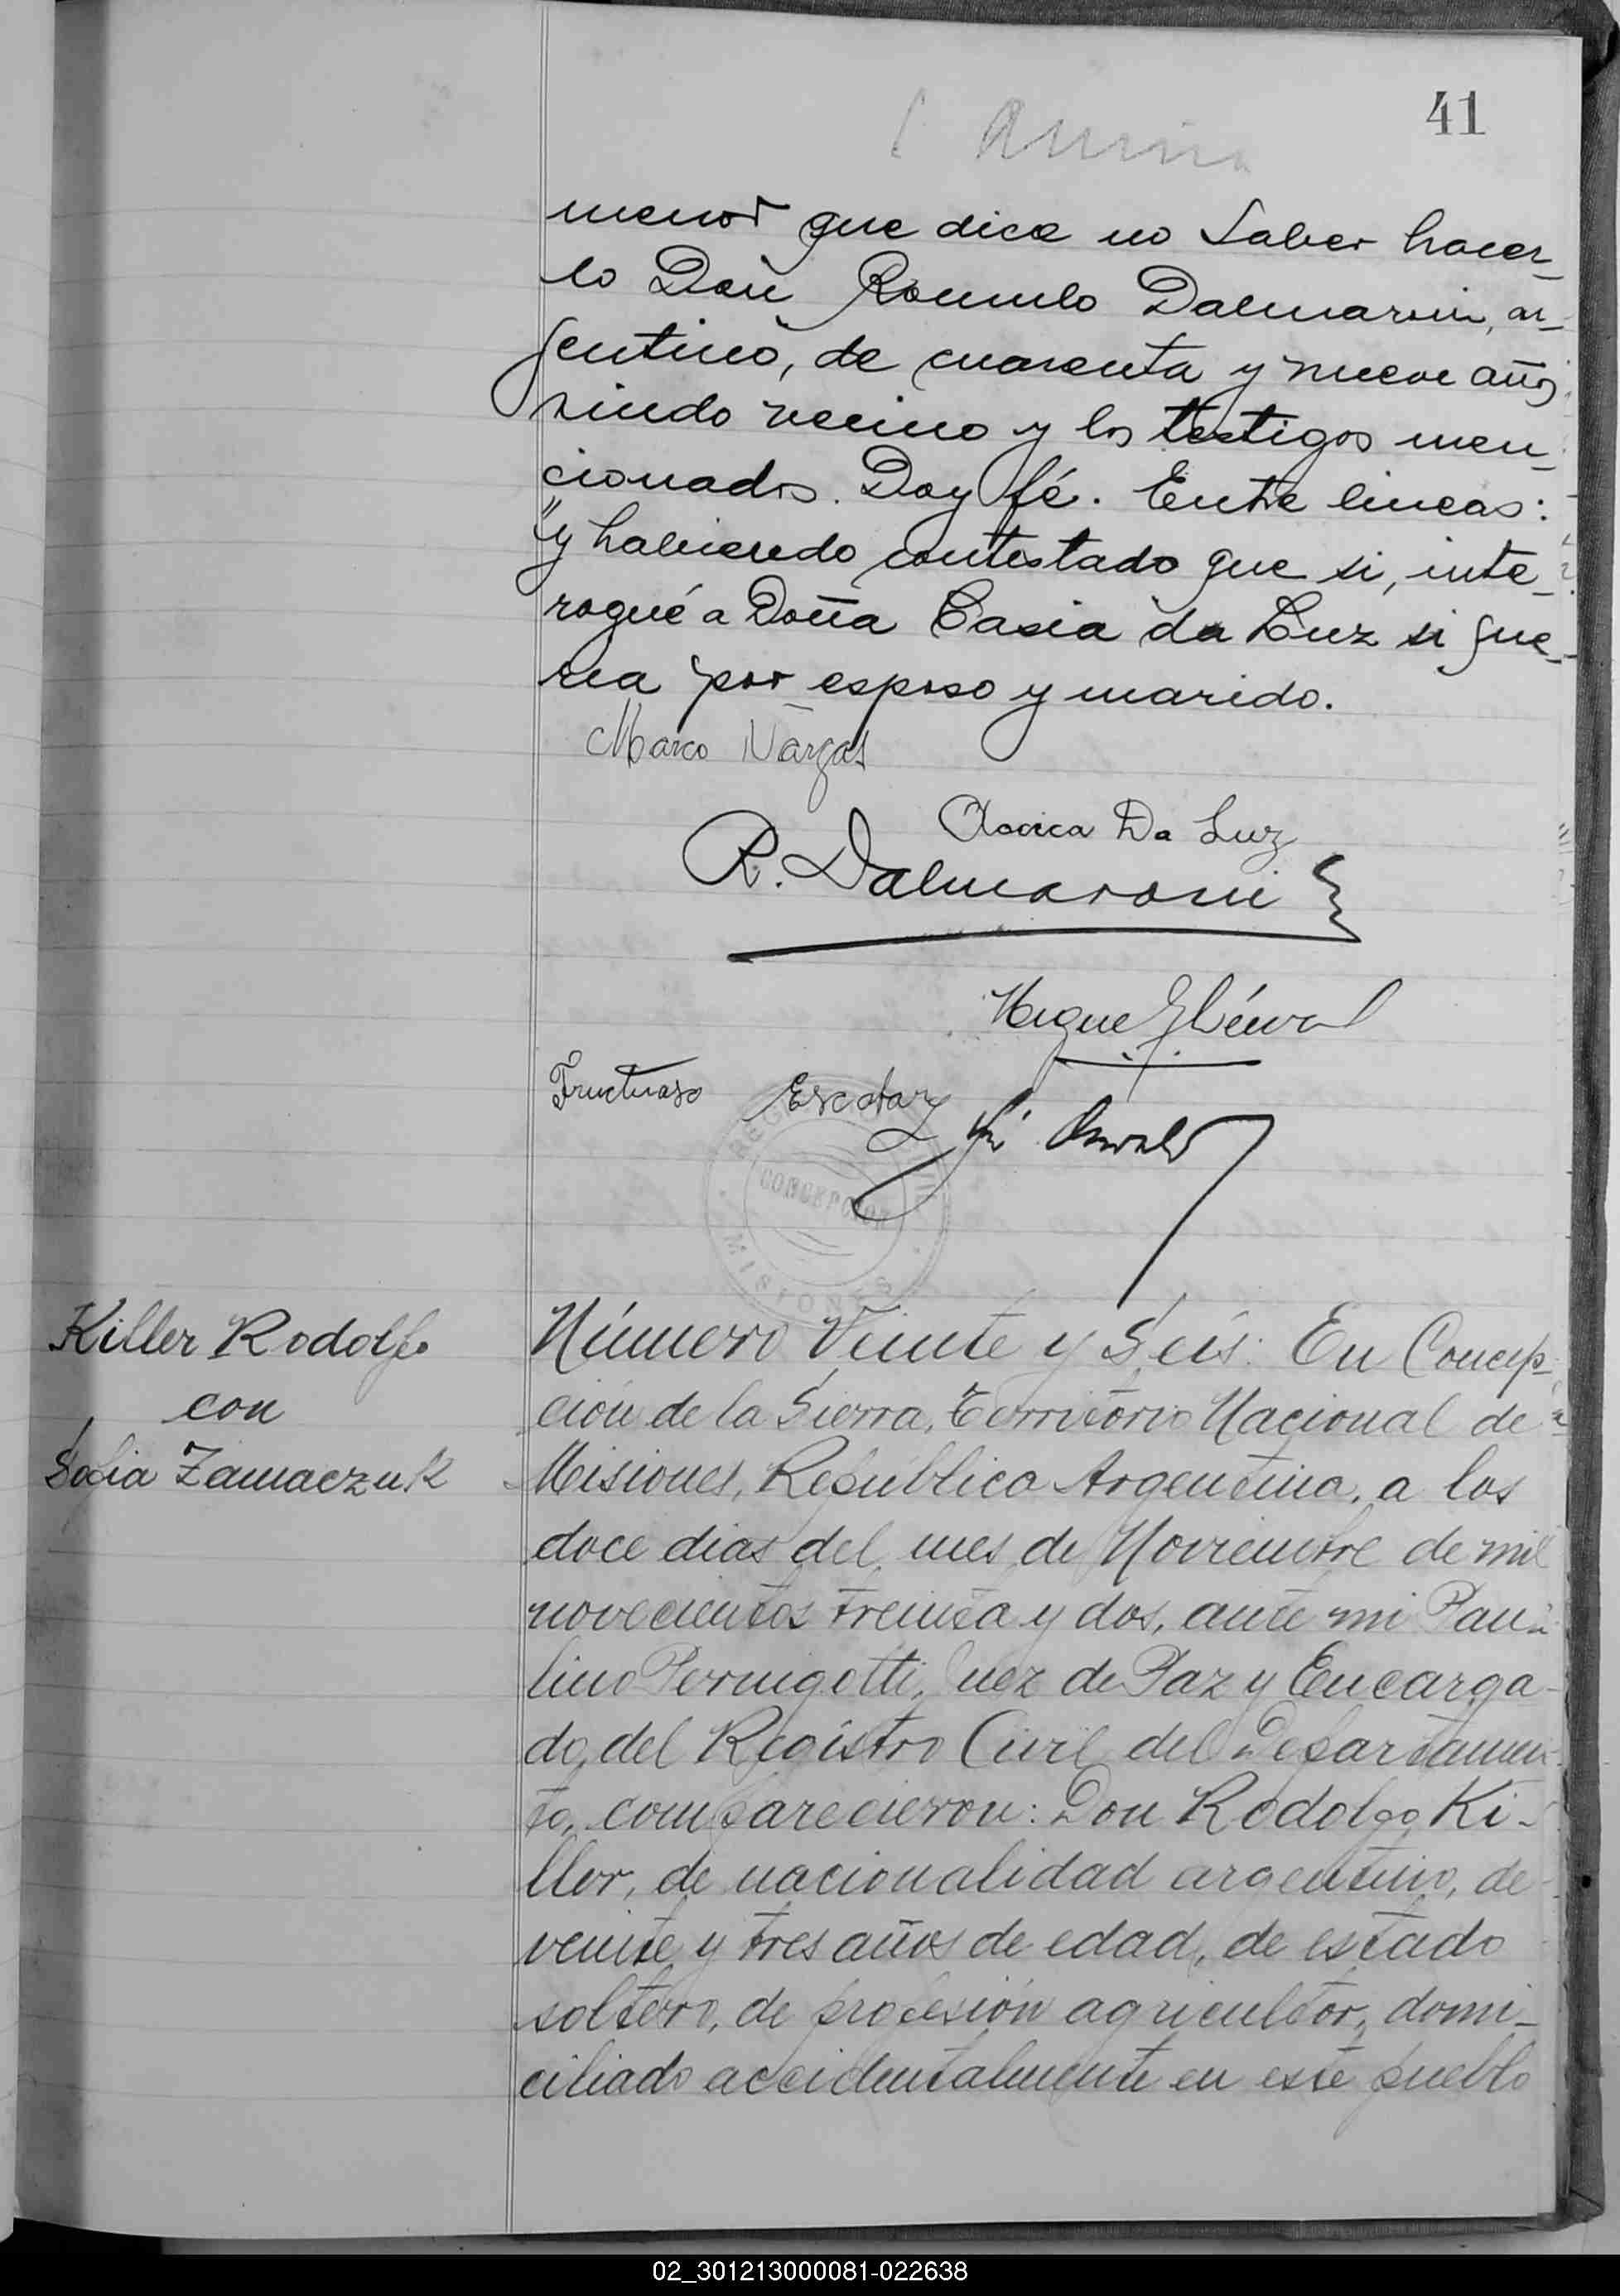 41
menor que dice no Saber hacer-
lo Don Romulo Dalmaroni, ar-
gentino, de cuarenta y nueve años
viudo vecino y los testigos men-
cionados. Doy fé. Entre lineas:
"y habiendo contestado que si, inte-
rogué a Doña Casia da Luz si que-
ria por esposo y marido.
Marco Vargas
Da Luz
R. Dalmaroni
Fructuoso Escobar
CONCEPCION
MISIONES
Killer Rodolfo
con
Sofia Zamaczuk
Número Veinte y Seis: En Concep-
ción de la Sierra, Territorio Nacional de
Misiones, República Argentina, a los
doce dias del mes de Noviembre de mil
novecientos treinta y dos, ante mi Pau-
lino Pernigotti, Juez de Paz y Encarga-
do del Registro Civil del Departamen-
to, comparecieron: Don Rodolfo Ki-
ller, de nacionalidad argentino, de
veinte y tres años de edad, de estado
soltero, de profesión agricultor, domi-
ciliado accidentalmente en este pueblo
02_301213000081-022638